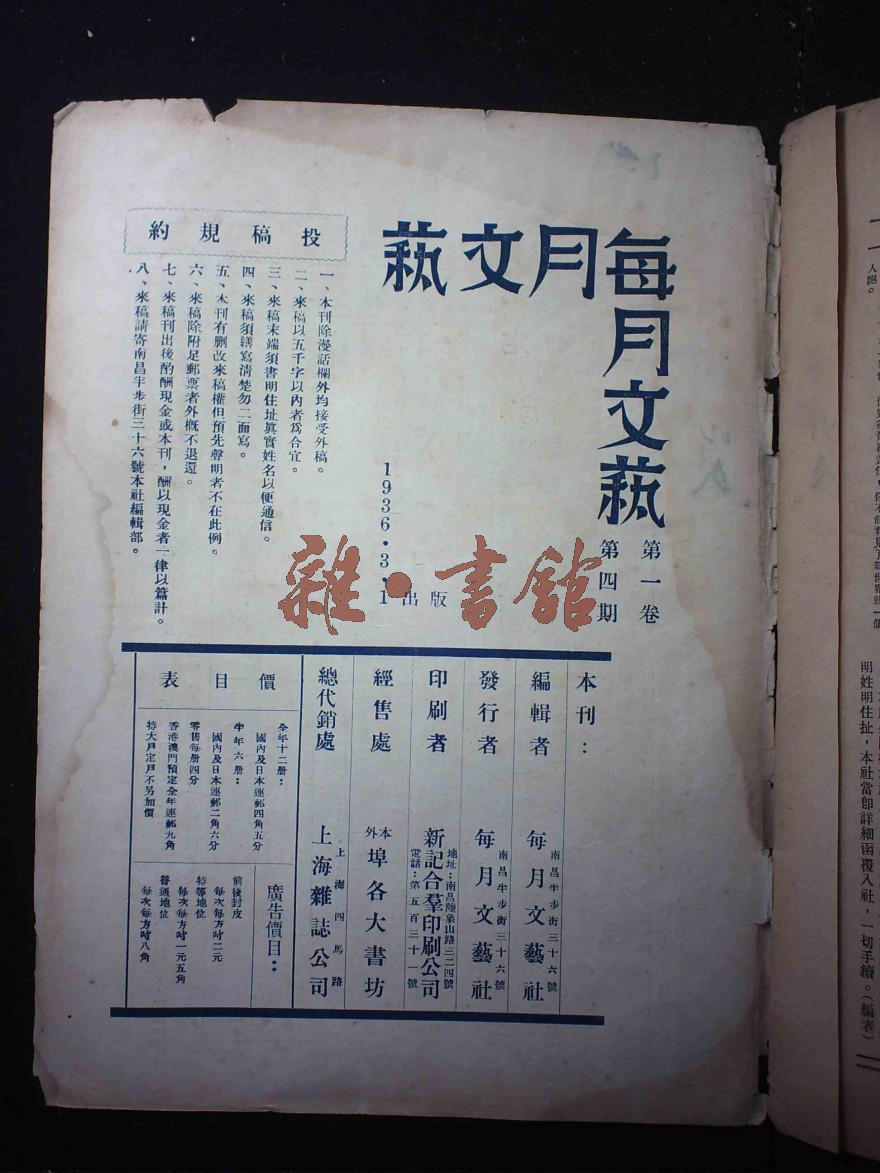 每月文藝
每月文藝
第一卷
第四期
1936・3・1出版
投稿規約
一、本刊除漫話欄外均接受外稿。
二、來稿以五千字以內者爲合宜。
三、來稿末端須書明住址眞實姓名以便通信。
四、來稿須繕寫清楚勿二面寫。
五、本刊有删改來稿權但預先聲明者不在此例。
六、來稿除附足郵票者外槪不退還。
七、來稿刊出後酌酬現金或本刊，酬以現金者一律以篇計。
八、來稿請寄南昌半步街三十六號本社編輯部。
雜・書館
本刊：
編輯者 南昌半步街三十六號 每月文藝社
發行者 南昌半步街三十六號 每月文藝社
印刷者 地址：南昌陸象山路三二四號 新記合羣印刷公司 電話：第五百三十一號
經售處 本外埠各大書坊
總代銷處 上海四馬路 上海雜誌公司
價目表
全年十二册：
國內及日本連郵四角五分
半年六册：
國內及日本連郵二角六分
零售每册四分
香港澳門預定全年連郵九角
特大月定戶不另加價
廣告價目：
前後封皮
每次每方吋二元
特等地位
每次每方吋一元五角
普通地位
每次每方吋八角
人龍。
明姓明住扯，本社當卽詳細函覆入社，一切手續。（編者）